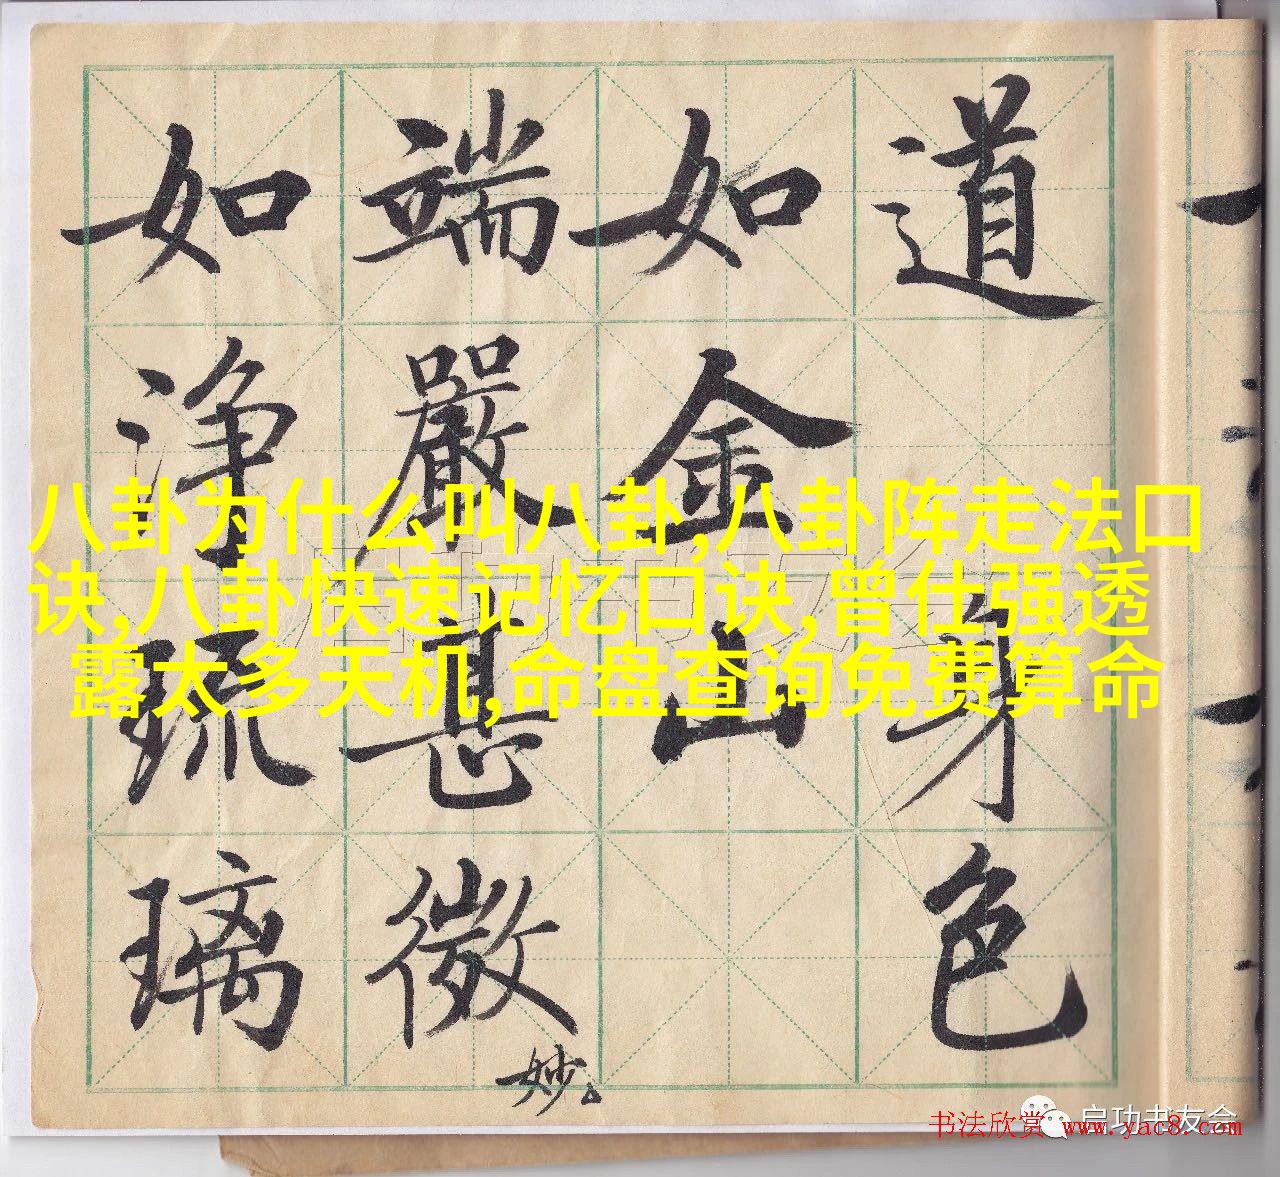 八卦为什么叫八卦,八卦阵走法口
诀,八卦快速记忆口诀,曾仕强透
露太多天机,命盘查询免费算命
道身色
如金山
端嚴甚微妙
如浄琉璃
启功书友会
书法欣赏 www.yac8.com